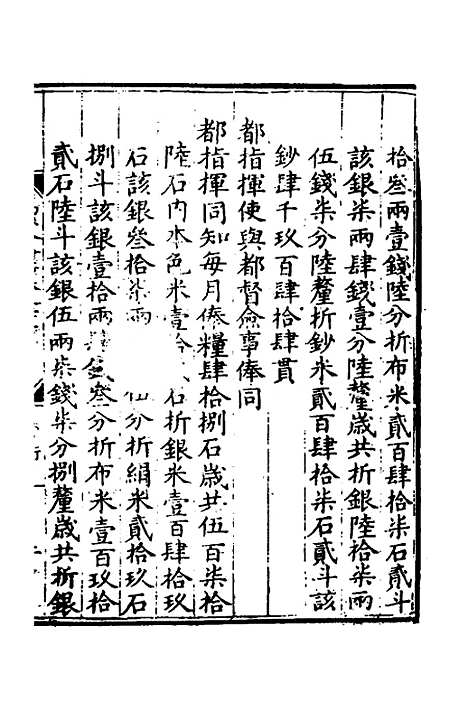 拾叁兩壹錢陸分折布米貳百肆拾柒石貳斗
該銀柒兩肆錢壹分陸釐歲共折銀陸拾柒兩
伍錢柒分陸釐折鈔米貳百肆拾柒石貳斗該
鈔肆千玖百肆拾肆貫
都指揮使與都督僉事俸同
都指揮同知每月俸糧肆拾捌石歲共伍百柒拾
陸石內本色米壹拾 石折銀米壹百肆拾玖
石該銀叁拾柒兩 分折絹米貳拾玖石
捌斗該銀壹拾兩 叁分折布米壹百玖拾
貳石陸斗該銀伍兩柒錢柒分捌釐歲共折銀